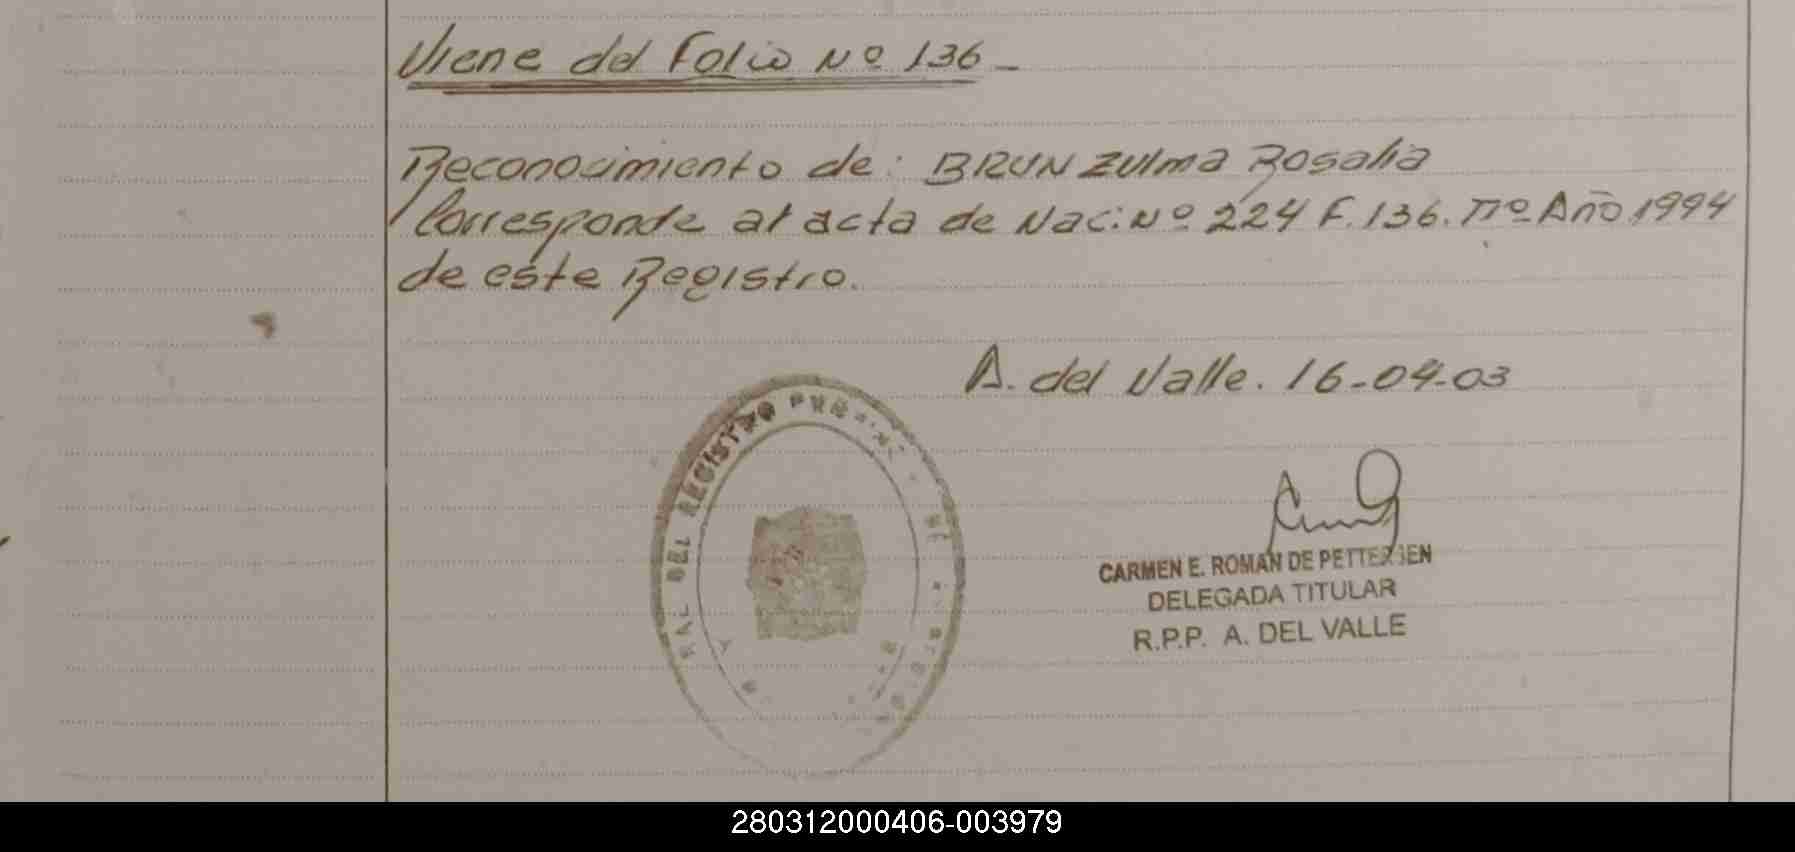 Viene del Folio Nº 136 -
Reconocimiento de: BRUN Zulma Rosalia
Corresponde al acta de Nac: Nº 224 F. 136. Tº Año 1994
de este Registro.
A. del Valle. 16-04-03
RAL DEL REGISTRO
CARMEN E. ROMAN DE PETTERSEN
DELEGADA TITULAR
R.P.P. A. DEL VALLE
280312000406-003979